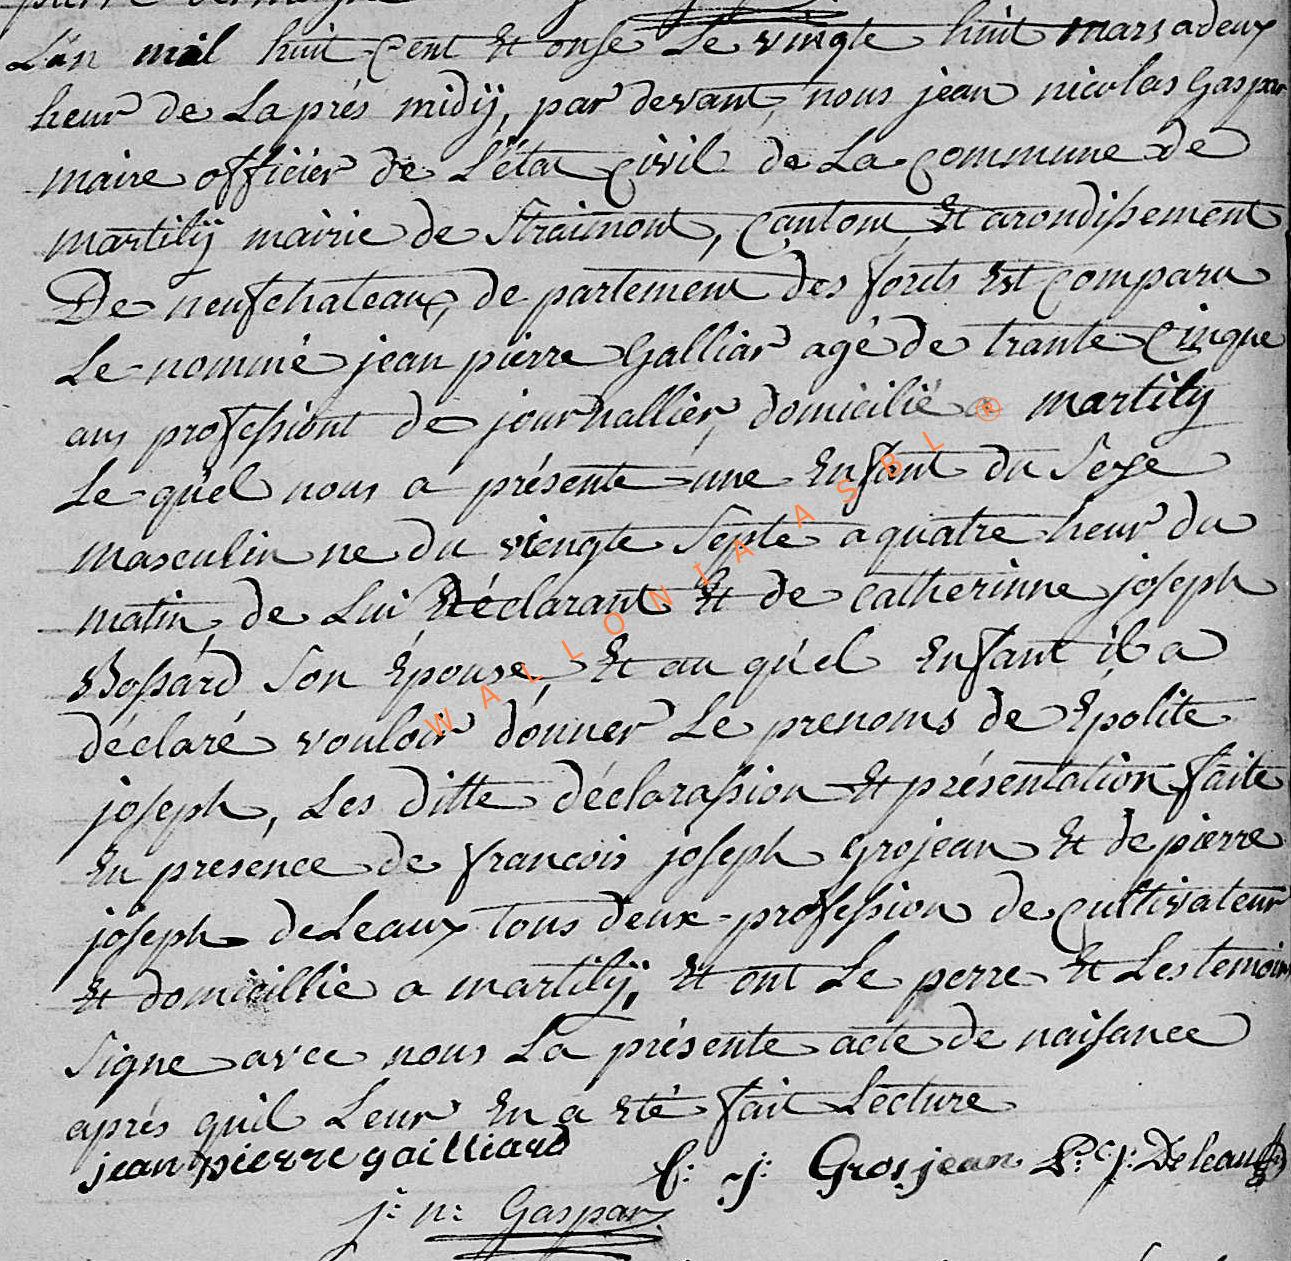 L'an mil huit cent et onse Le vingte huit mars a deux
heur de La prés midÿ, par devant nous jean nicolas Gaspar
maire officiér de L'état civil de La commune de
martilÿ mairie de Straimont, Cantont et arondissement
De neufchateaux, de partement des forêts Est comparu
Le nommé jean pierre Galliar agé de trante cinque
ans professiont de journalliér, domicilié a martilÿ
Le quel nous a présente une Enfant du Sexe
masculin ne du viengte Septe a quatre heur du
matin, de Lui Déclarant Et de catherinne joseph
Bossard Son Épouse, Et au quel Enfant il a
déclaré vouloir donner Le prenoms de Épolite
joseph, Les ditte déclarassion Et présentation faite
En presence de francois joseph Grojean Et de pierre
joseph deLeaux tous deux profession de cultivateur
Et domicillié a martilÿ, Et ont Le perre Et Les temoin
Signe avec nous La présente acte de naissance
aprés quil Leur En a Eté fait Lecture
jean pierre gailliard
f: j: Grosjean P:re j: Deleau
j: n: Gaspar
WALLONIA ASBL ®